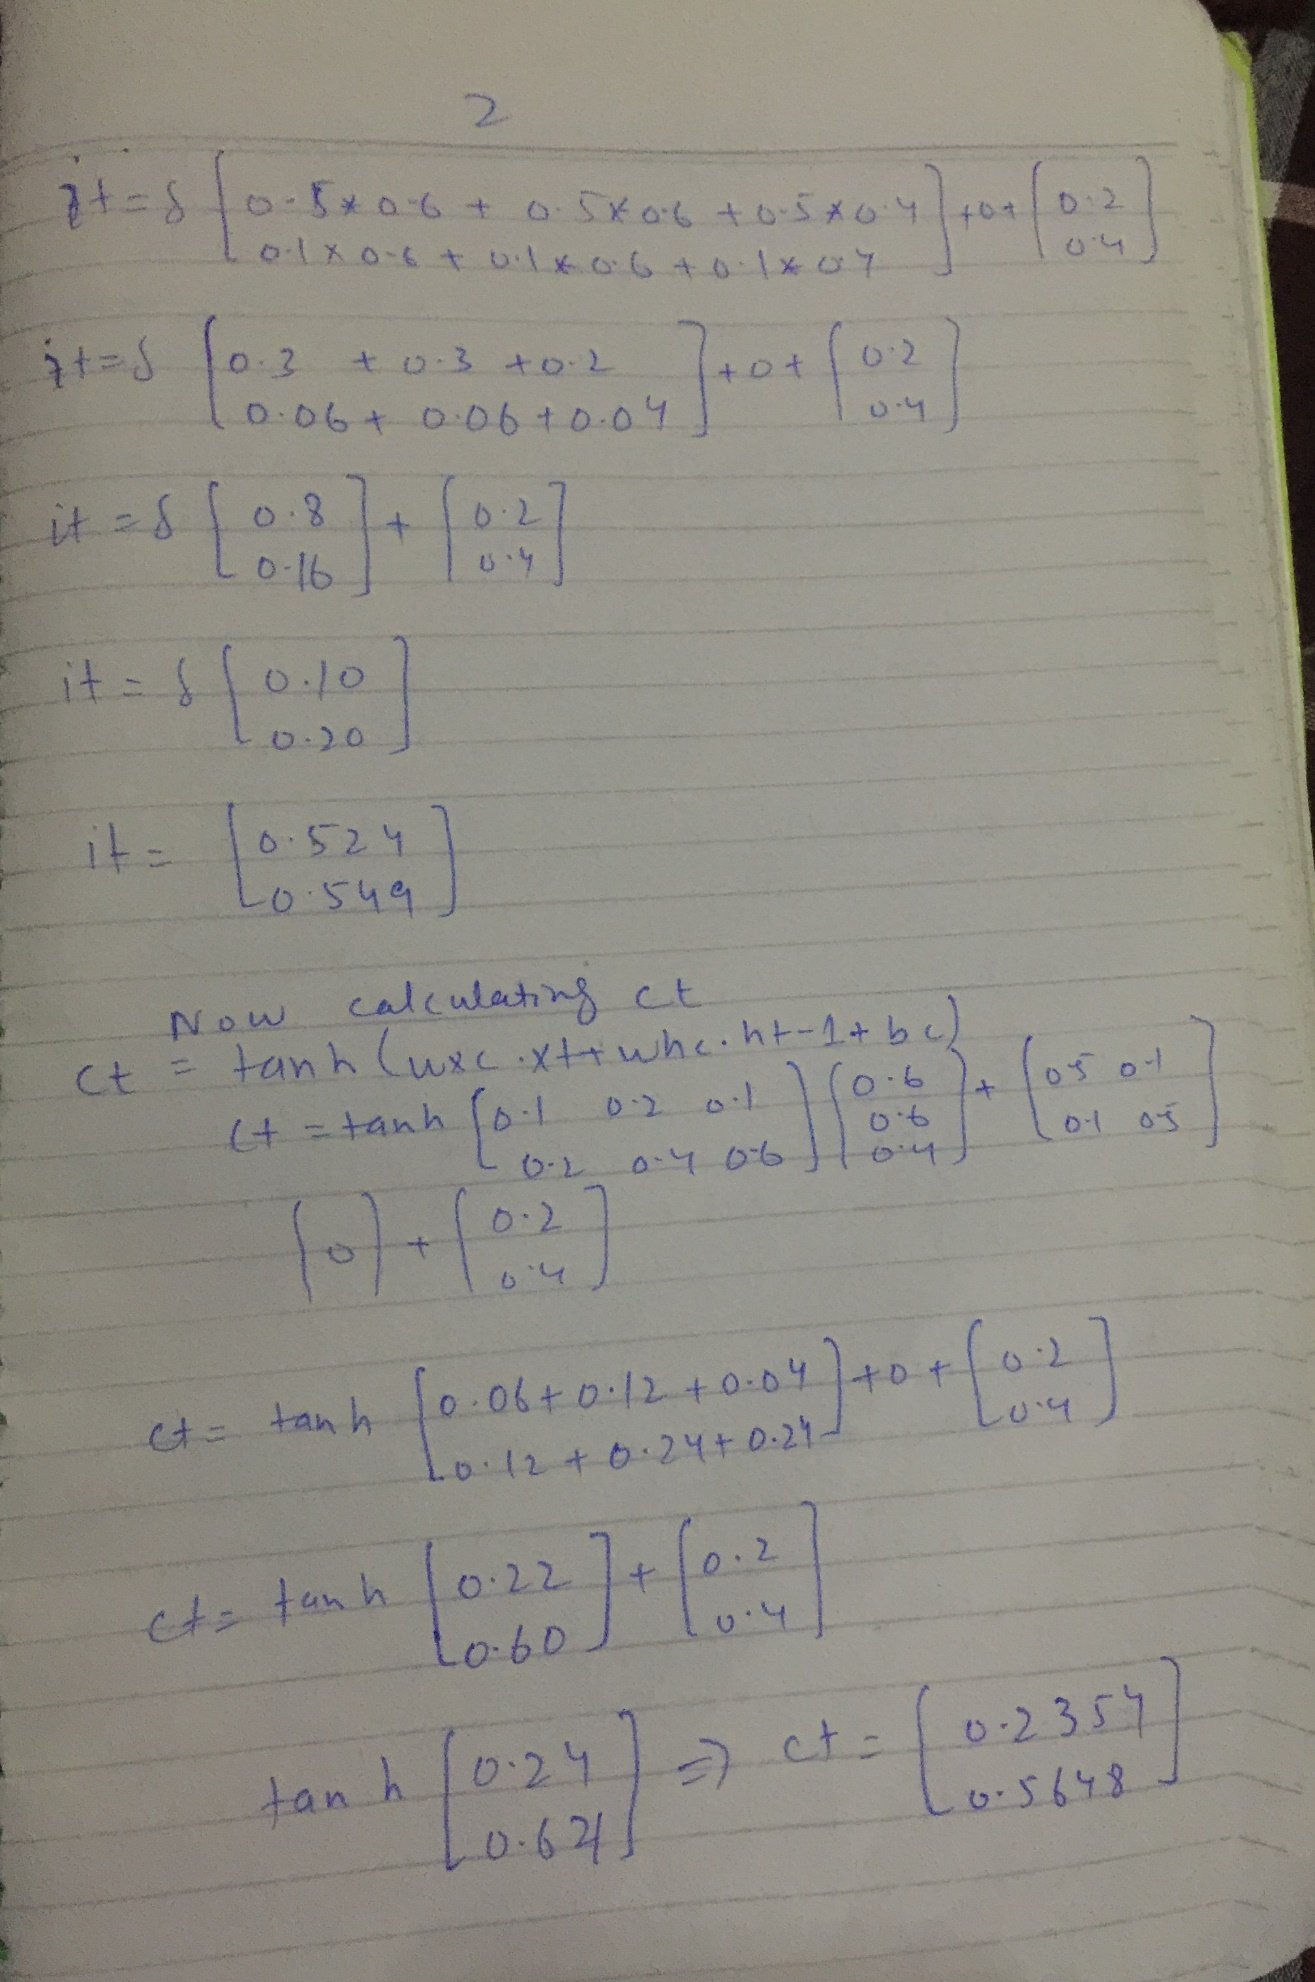 2
it = δ [0.5*0.6 + 0.5*0.6 + 0.5*0.4] + 0 + [0.2]
[0.1*0.6 + 0.1*0.6 + 0.1*0.4] [0.4]
it = δ [0.3 + 0.3 + 0.2] + 0 + [0.2]
[0.06 + 0.06 + 0.04] [0.4]
it = δ [0.8] + [0.2]
[0.16] [0.4]
it = δ [0.10]
[0.20]
it = [0.524]
[0.549]
Now calculating ct
ct = tanh (wxc.xt + whc.ht-1 + bc)
ct = tanh [0.1 0.2 0.1] [0.6] + [0.5 0.1]
[0.2 0.4 0.6] [0.6] [0.1 0.5]
[0.4]
[0] + [0.2]
[0.4]
ct = tanh [0.06+0.12+0.04] + 0 + [0.2]
[0.12+0.24+0.24] [0.4]
ct = tanh [0.22] + [0.2]
[0.60] [0.4]
tanh [0.24] ⇒ ct = [0.2354]
[0.64] [0.5648]